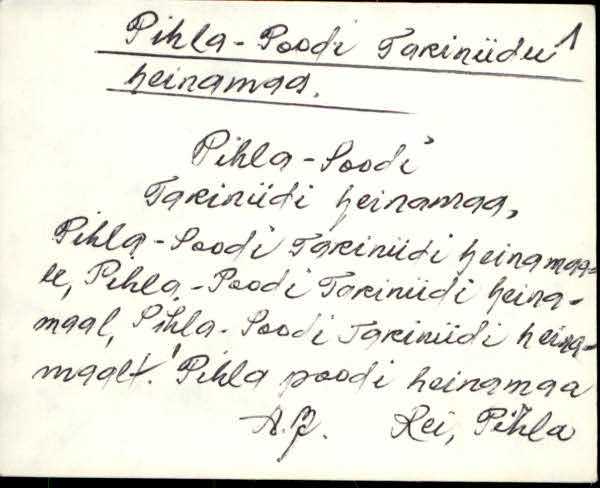 Pihla-Poodi Takiniidu 1
heinamaa.
Pihla-Poodi
Takiniidi heinamaa,
Pihla-Poodi Takiniidi heinamaa=
le, Pihla-Poodi Takiniidi heina-
maal, Pihla-Poodi Takiniidi heina=
maalt. Pihla poodi heinamaa
A.J. Rei, Pihla